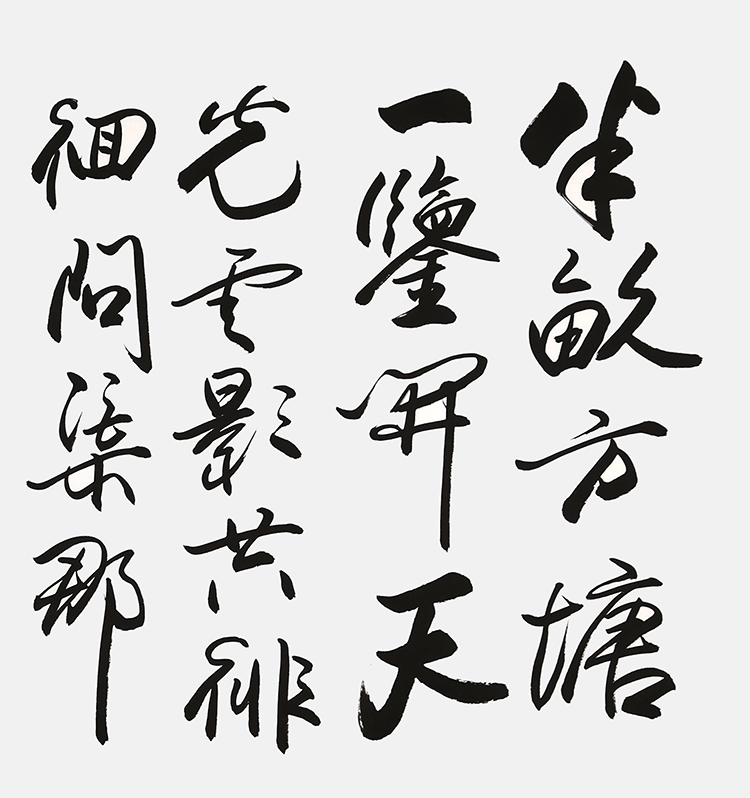 半畝方塘
一鑒開天
光雲影共徘
徊問渠那